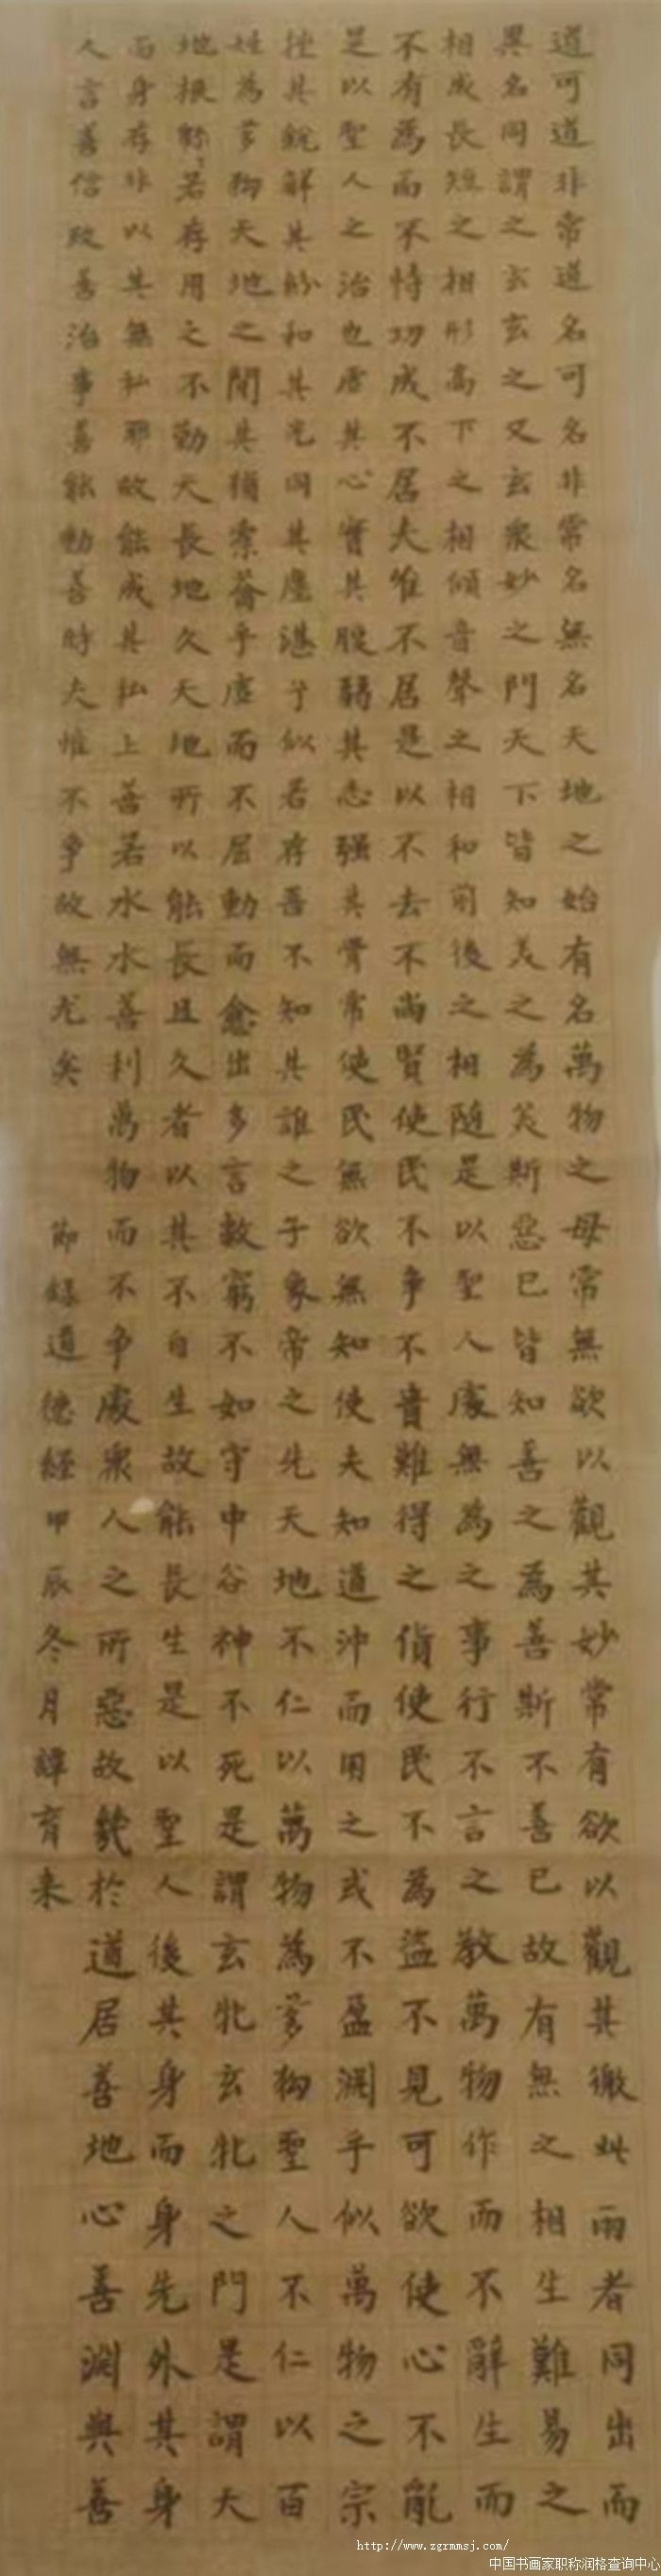 道可道非常道名可名非常名無名天地之始有名萬物之母常無欲以觀其妙常有欲以觀其徼此兩者同出而
異名同謂之玄玄之又玄衆妙之門天下皆知美之為美斯惡已皆知善之為善斯不善已故有無之相生難易之
相成長短之相形高下之相傾音聲之相和前後之相隨是以聖人處無為之事行不言之教萬物作而不辭生而
不有為而不恃功成不居夫惟不居是以不去不尚賢使民不爭不貴難得之貨使民不為盜不見可欲使心不亂
是以聖人之治也虛其心實其腹弱其志强其骨常使民無欲無知使夫知道沖而用之或不盈淵乎似萬物之宗
挫其銳解其紛和其光同其塵湛兮似若存吾不知其誰之子象帝之先天地不仁以萬物為芻狗聖人不仁以百
姓為芻狗天地之間其猶橐籥乎虛而不屈動而愈出多言數窮不如守中谷神不死是謂玄牝玄牝之門是謂天
地根緜緜若存用之不勤天長地久天地所以能長且久者以其不自生故能長生是以聖人後其身而身先外其身
而身存非以其無私邪故能成其私上善若水水善利萬物而不爭處衆人之所惡故幾於道居善地心善淵與善
人言善信政善治事善能動善時夫惟不爭故無尤矣
節錄道德經甲辰冬月譚育来
http://www.zgrmmsj.com/
中国书画家职称润格查询中心